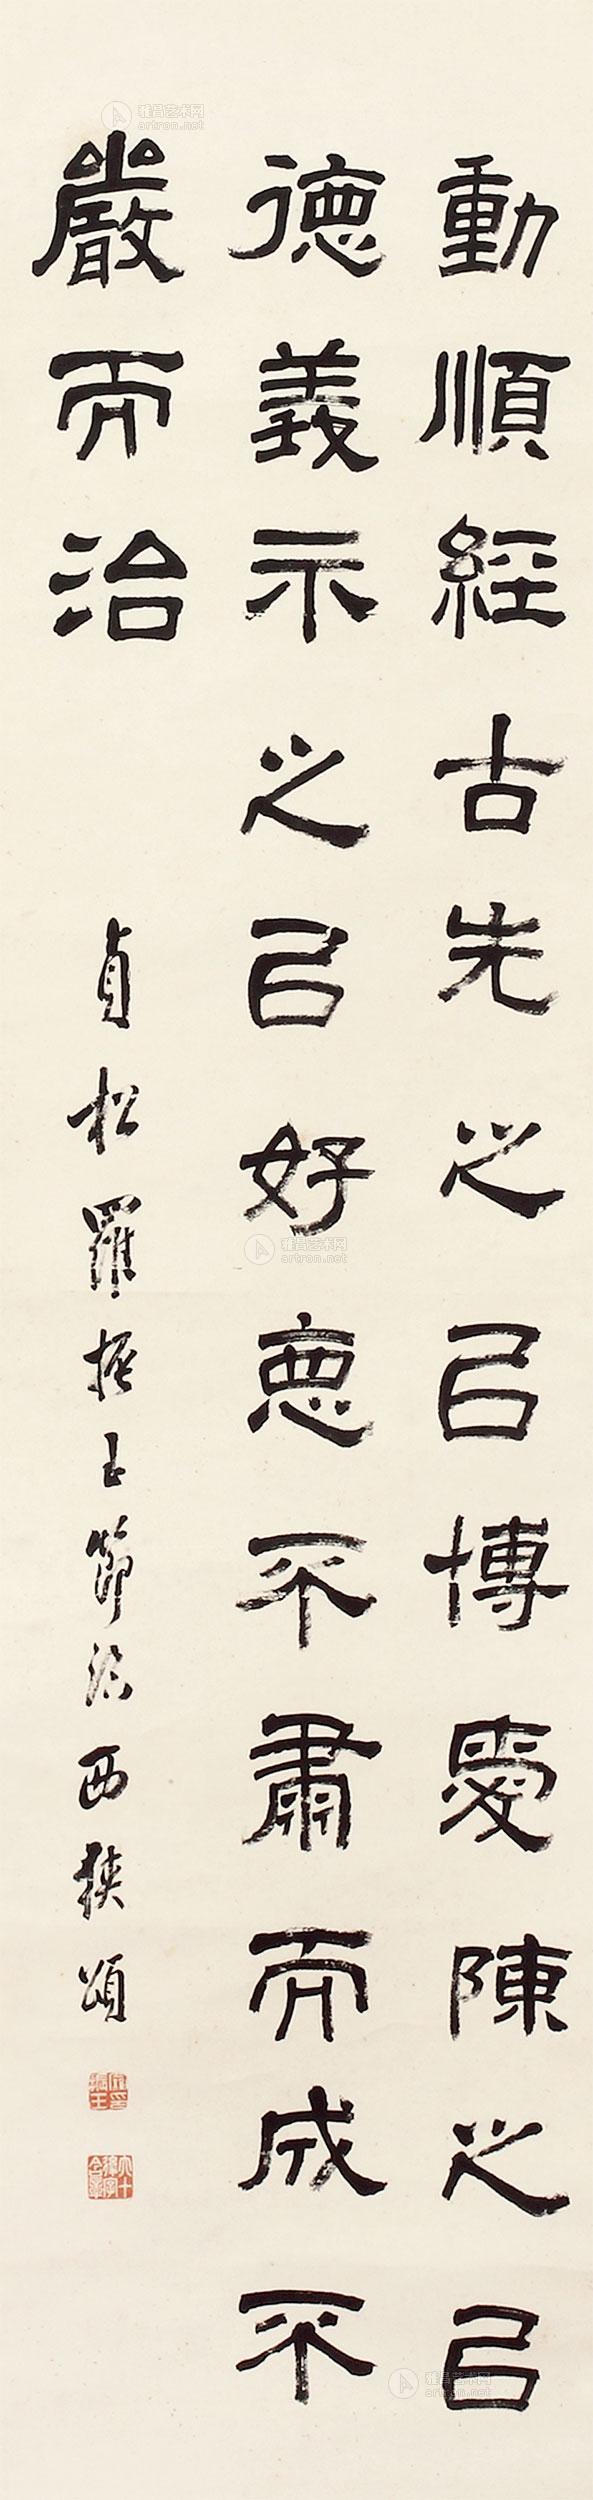 動順經古先之以博愛陳之以
德義示之以好惡不肅而成不
嚴而治
貞松羅振玉節臨西狹頌
雅昌艺术网
artron.net
雅昌艺术网
artron.net
雅昌艺术网
artron.net